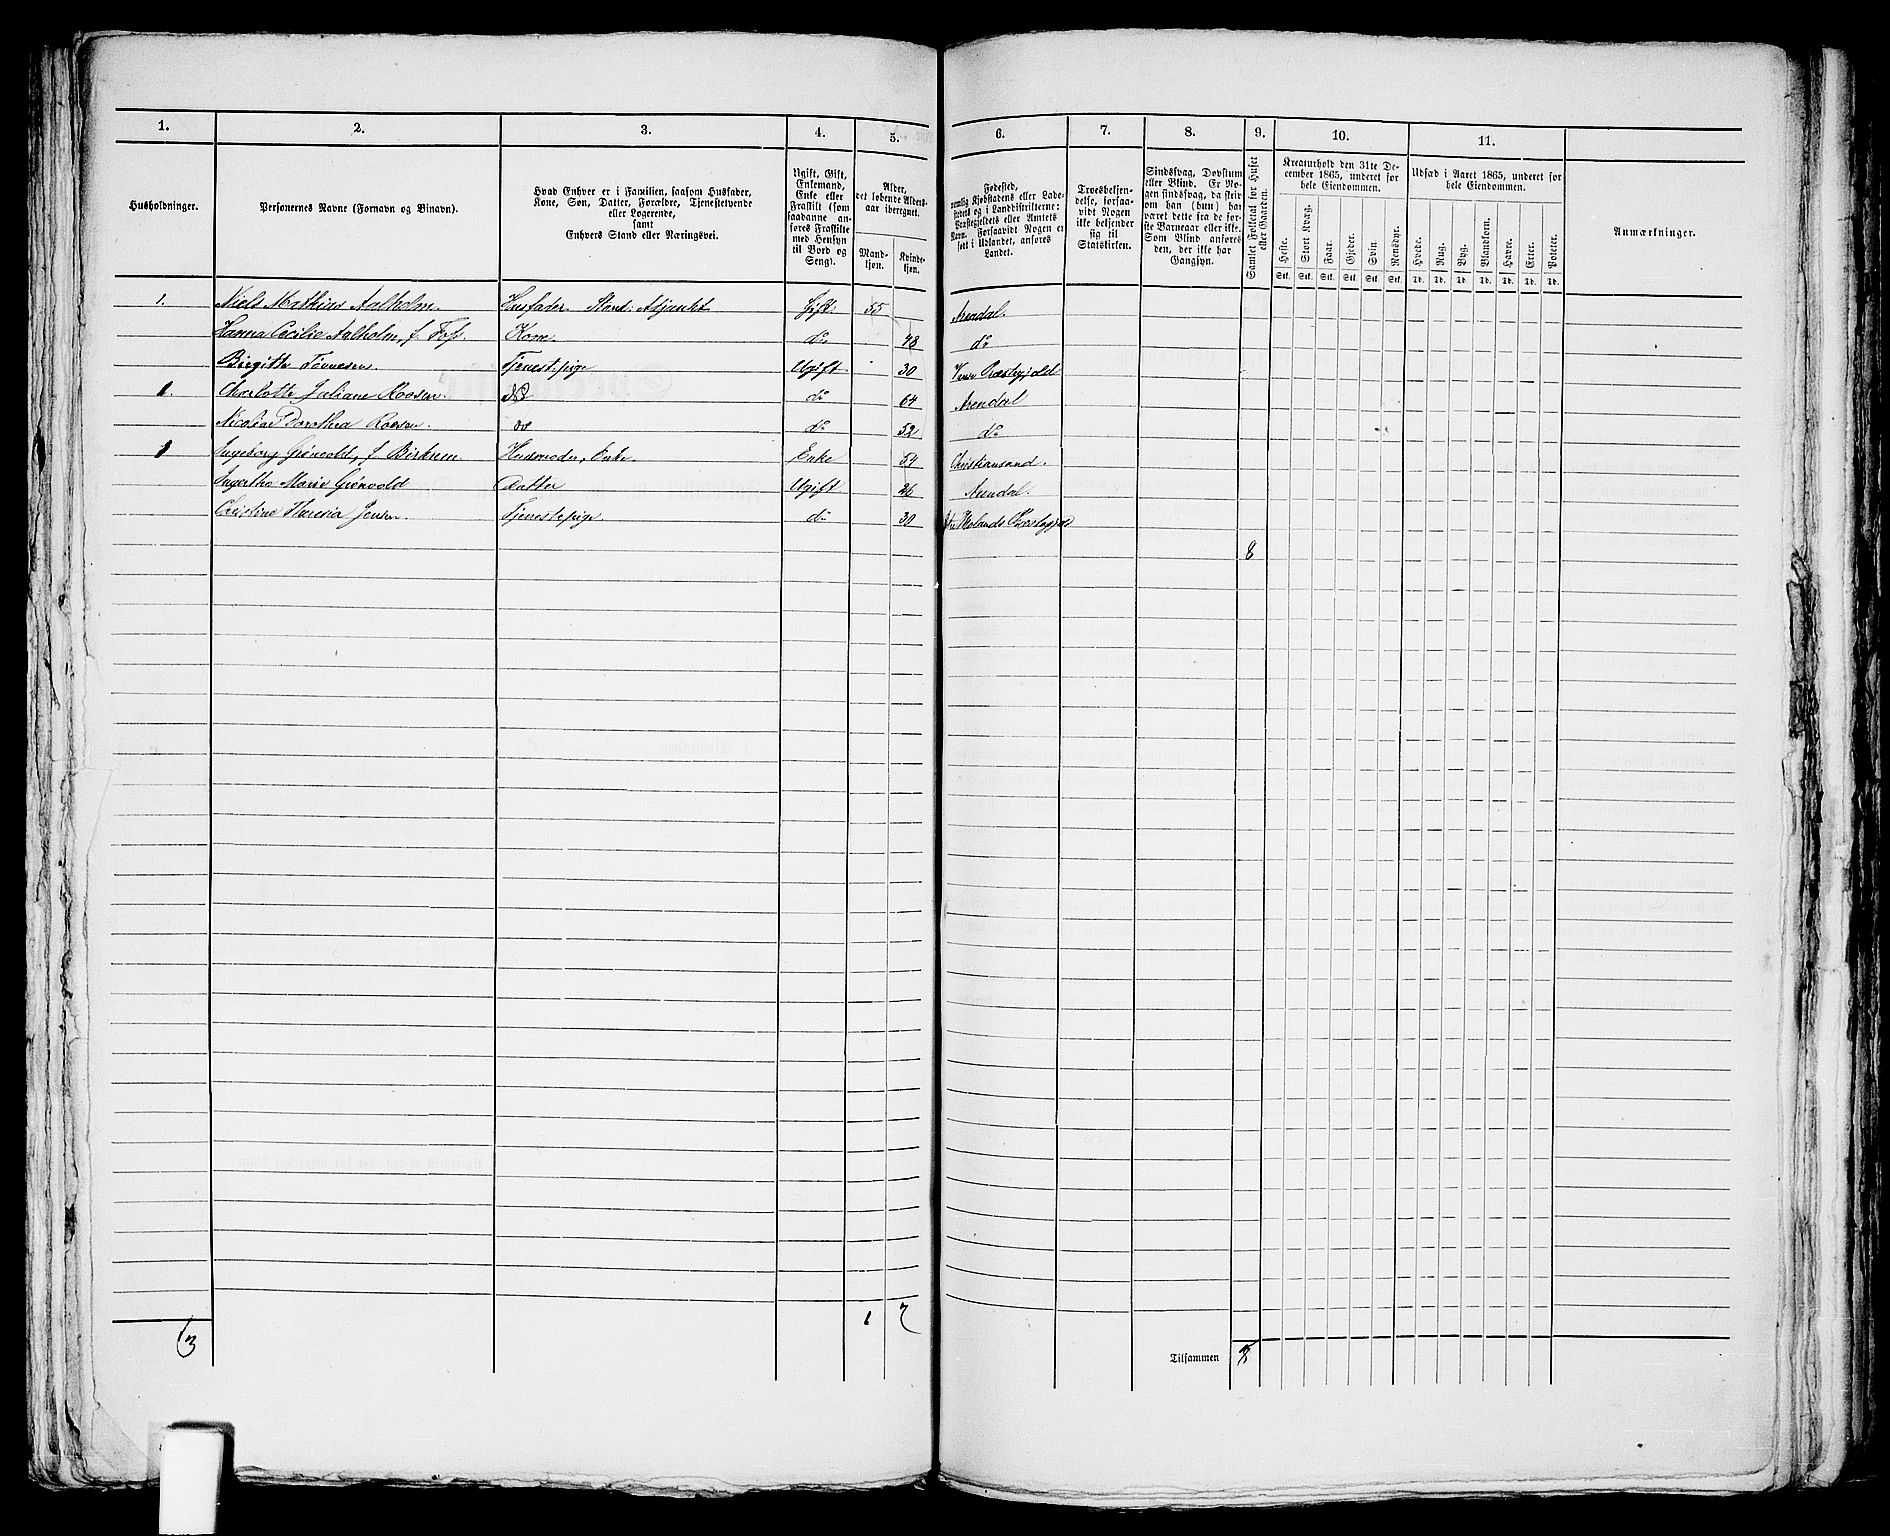 1. 2. 3. 4. 5. 6. 7. 8. 9. 10. 11.
Husholdninger.
Personernes Navne (Fornavn og Binavn).
Hvad Enhver er i Familien, saasom Husfader,
Kone, Søn, Datter, Forældre, Tjenestetyende
eller Logerende,
samt
Enhvers Stand eller Næringsvei.
Ugift, Gift,
Enkemand,
Enke eller
Fraskilt (som
saadanne an-
føres Fraskilte
med Hensyn
til Bord og
Seng).
Alder,
det løbende Alders-
aar iberegnet.
Mand-
kjøn.
Kvinde-
kjøn.
Fødested,
nemlig Kjøbstadens eller Lade-
stedets og i Landdistrikterne:
Præstegjeldets eller Amtets
Navn. Forsaavidt Nogen er
født i Udlandet, anføres
Landet.
Troesbekjen-
delse, forsaa-
vidt Nogen
ikke bekjender
sig til
Statskirken.
Sindssvag, Døvstum
eller Blind. Er No-
gen sindssvag, da skri-
ves om han (hun) har
været dette fra de før-
ste Barneaar eller ikke.
Som Blind anføres
den, der ikke har
Gangsyn.
Samlet Folketal for Huset
eller Gaarden.
Kreaturhold den 31te De-
cember 1865, underet for
hele Eiendommen.
Heste. Stort Kvæg. Faar. Gjeder. Svin. Rensdyr.
Stk. Stk. Stk. Stk. Stk. Stk.
Udsæd i Aaret 1865, underet for
hele Eiendommen.
Hvede. Rug. Byg. Blandkorn. Havre. Erter. Poteter.
Td. Td. Td. Td. Td. Td. Td.
Anmærkninger.
1. Niels Mathias Aalholm. Husfader Stand: Adjunkt Gift. 55 Arendal.
Hanna Cecilie Aalholm, f. Foss. Kone. do 48 do
Birgithe Tønnesen Tjenestepige Ugift 30 Præstegjeld
1. Charlotte Juliane Roosen. do 64 Arendal
Nicoline Dorothea Roosen. do 52 do
1 Ingeborg Grønvold, f. Husmoder, Enke. Enke 54 Christiansand.
Marie Grønvold Datter Ugift 26 Arendal.
Christine Theresia Jensen. Tjenestepige. do 30 Molands Præstegjeld
8
3 1 7
Tilsammen 8